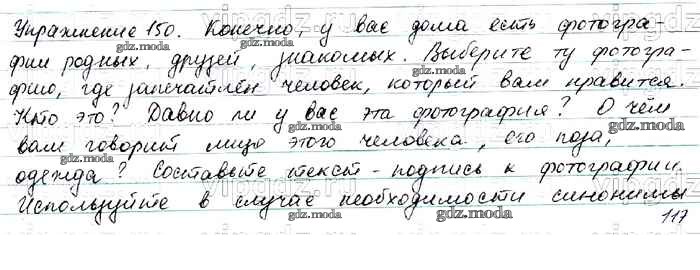 Упражнение 150. Конечно, у вас дома есть фотогра-
фии родных, друзей, знакомых. Выберите ту фотогра-
фию, где запечатлён человек, который вам нравится.
Кто это? Давно ли у вас эта фотография? О чём
вам говорит лицо этого человека, его поза,
одежда? Составьте текст-подпись к фотографии.
Используйте в случае необходимости синонимы
117